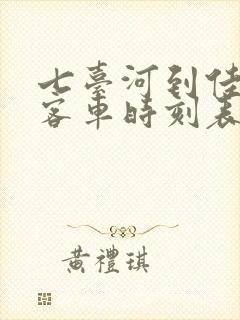 七臺河到佳
客車時刻表
黃禮琪